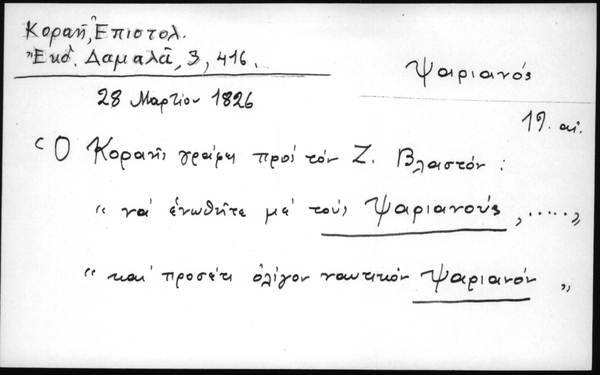 Κοραῆ, Ἐπιστολ.
Ἐκδ. Δαμαλᾶ, 3, 416.
Ψαριανός
28 Μαρτίου 1826
19. αἰ.
Ὁ Κοραῆς γράφει πρὸς τὸν Ζ. Βλαστόν :
" νὰ ἑνωθῆτε μὲ τοὺς Ψαριανούς, ..... "
" καὶ προσέτι ὀλίγον ναυτικὸν Ψαριανόν "